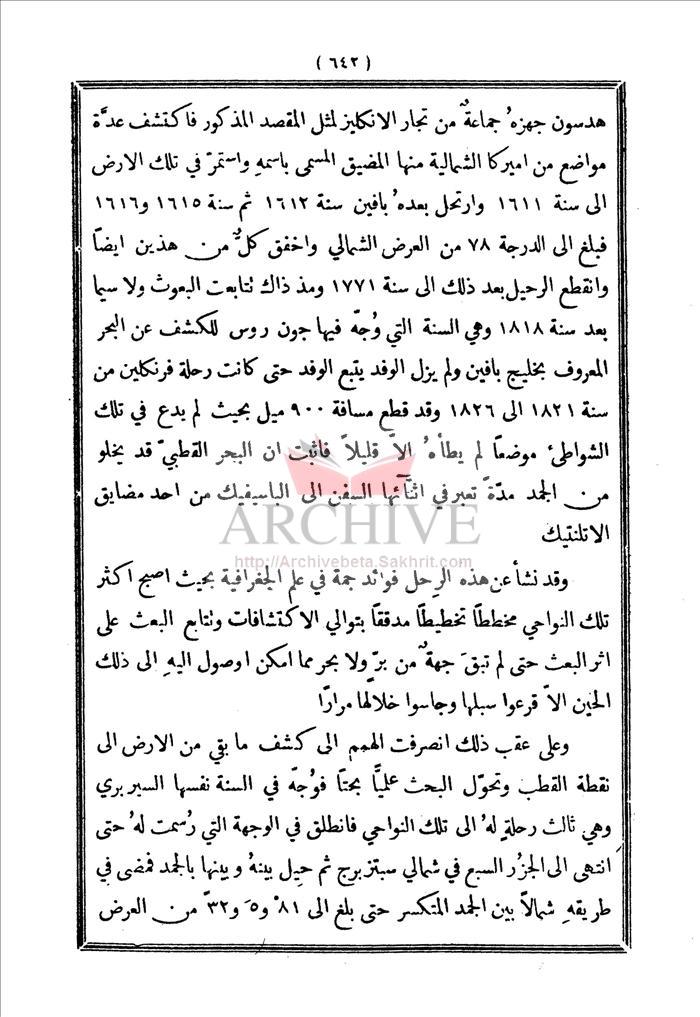 ( ٦٤٢ )
هدسون جهزهُ جماعةٌ من تجار الانكليز لمثل المقصد المذكور فاكتشف عدَّة
مواضع من اميركا الشمالية منها المضيق المسمى باسمهِ واستمرّ في تلك الارض
الى سنة ١٦١١ وارتحل بعدهُ بافين سنة ١٦١٢ ثم سنة ١٦١٥ و١٦١٦
فبلغ الى الدرجة ٧٨ من العرض الشمالي واخفق كلٌّ من هذين ايضاً
وانقطع الرحيل بعد ذلك الى سنة ١٧٧١ ومذ ذاك تتابعت البعوث ولا سيما
بعد سنة ١٨١٨ وهي السنة التي وُجّه فيها جون روس للكشف عن البحر
المعروف بخليج بافين ولم يزل الوفد يتبع الوفد حتى كانت رحلة فرنكلين من
سنة ١٨٢١ الى ١٨٢٦ وقد قطع مسافة ٩٠٠ ميل بحيث لم يدع في تلك
الشواطئ موضعاً لم يطأهُ الاّ قليلاً فاثبت ان البحر القطبيّ قد يخلو
من الجمد مدّةً تعبر في اثنائها السفن الى الپاسيفيك من احد مضايق
الاتلنتيك
ARCHIVE
http://Archivebeta.Sakhrit.com
وقد نشأ عن هذه الرِحل فوائد جمة في علم الجغرافية بحيث اصبح اكثر
تلك النواحي مخططاً تخطيطاً مدققاً بتوالي الاكتشافات وتتابع البعث على
اثر البعث حتى لم تبقَ جهةٌ من برّ ولا بحر مما امكن اوصول اليهِ الى ذلك
الحين الاّ قرعوا سبلها وجاسوا خلالها مراراً
وعلى عقب ذلك انصرفت الهمم الى كشف ما بقي من الارض الى
نقطة القطب وتحوّل البحث علميًّا بحتاً فوُجّه في السنة نفسها السير بري
وهي ثالث رحلةٍ لهُ الى تلك النواحي فانطلق في الوجهة التي رُسمت لهُ حتى
انتهى الى الجزُر السبع في شمالي سبتزبرج ثم حِيل بينهُ وبينها بالجمد فمضى في
طريقهِ شمالاً بين الجمد المتكسر حتى بلغ الى ٨١ْ و٥َ و٣٢ً من العرض